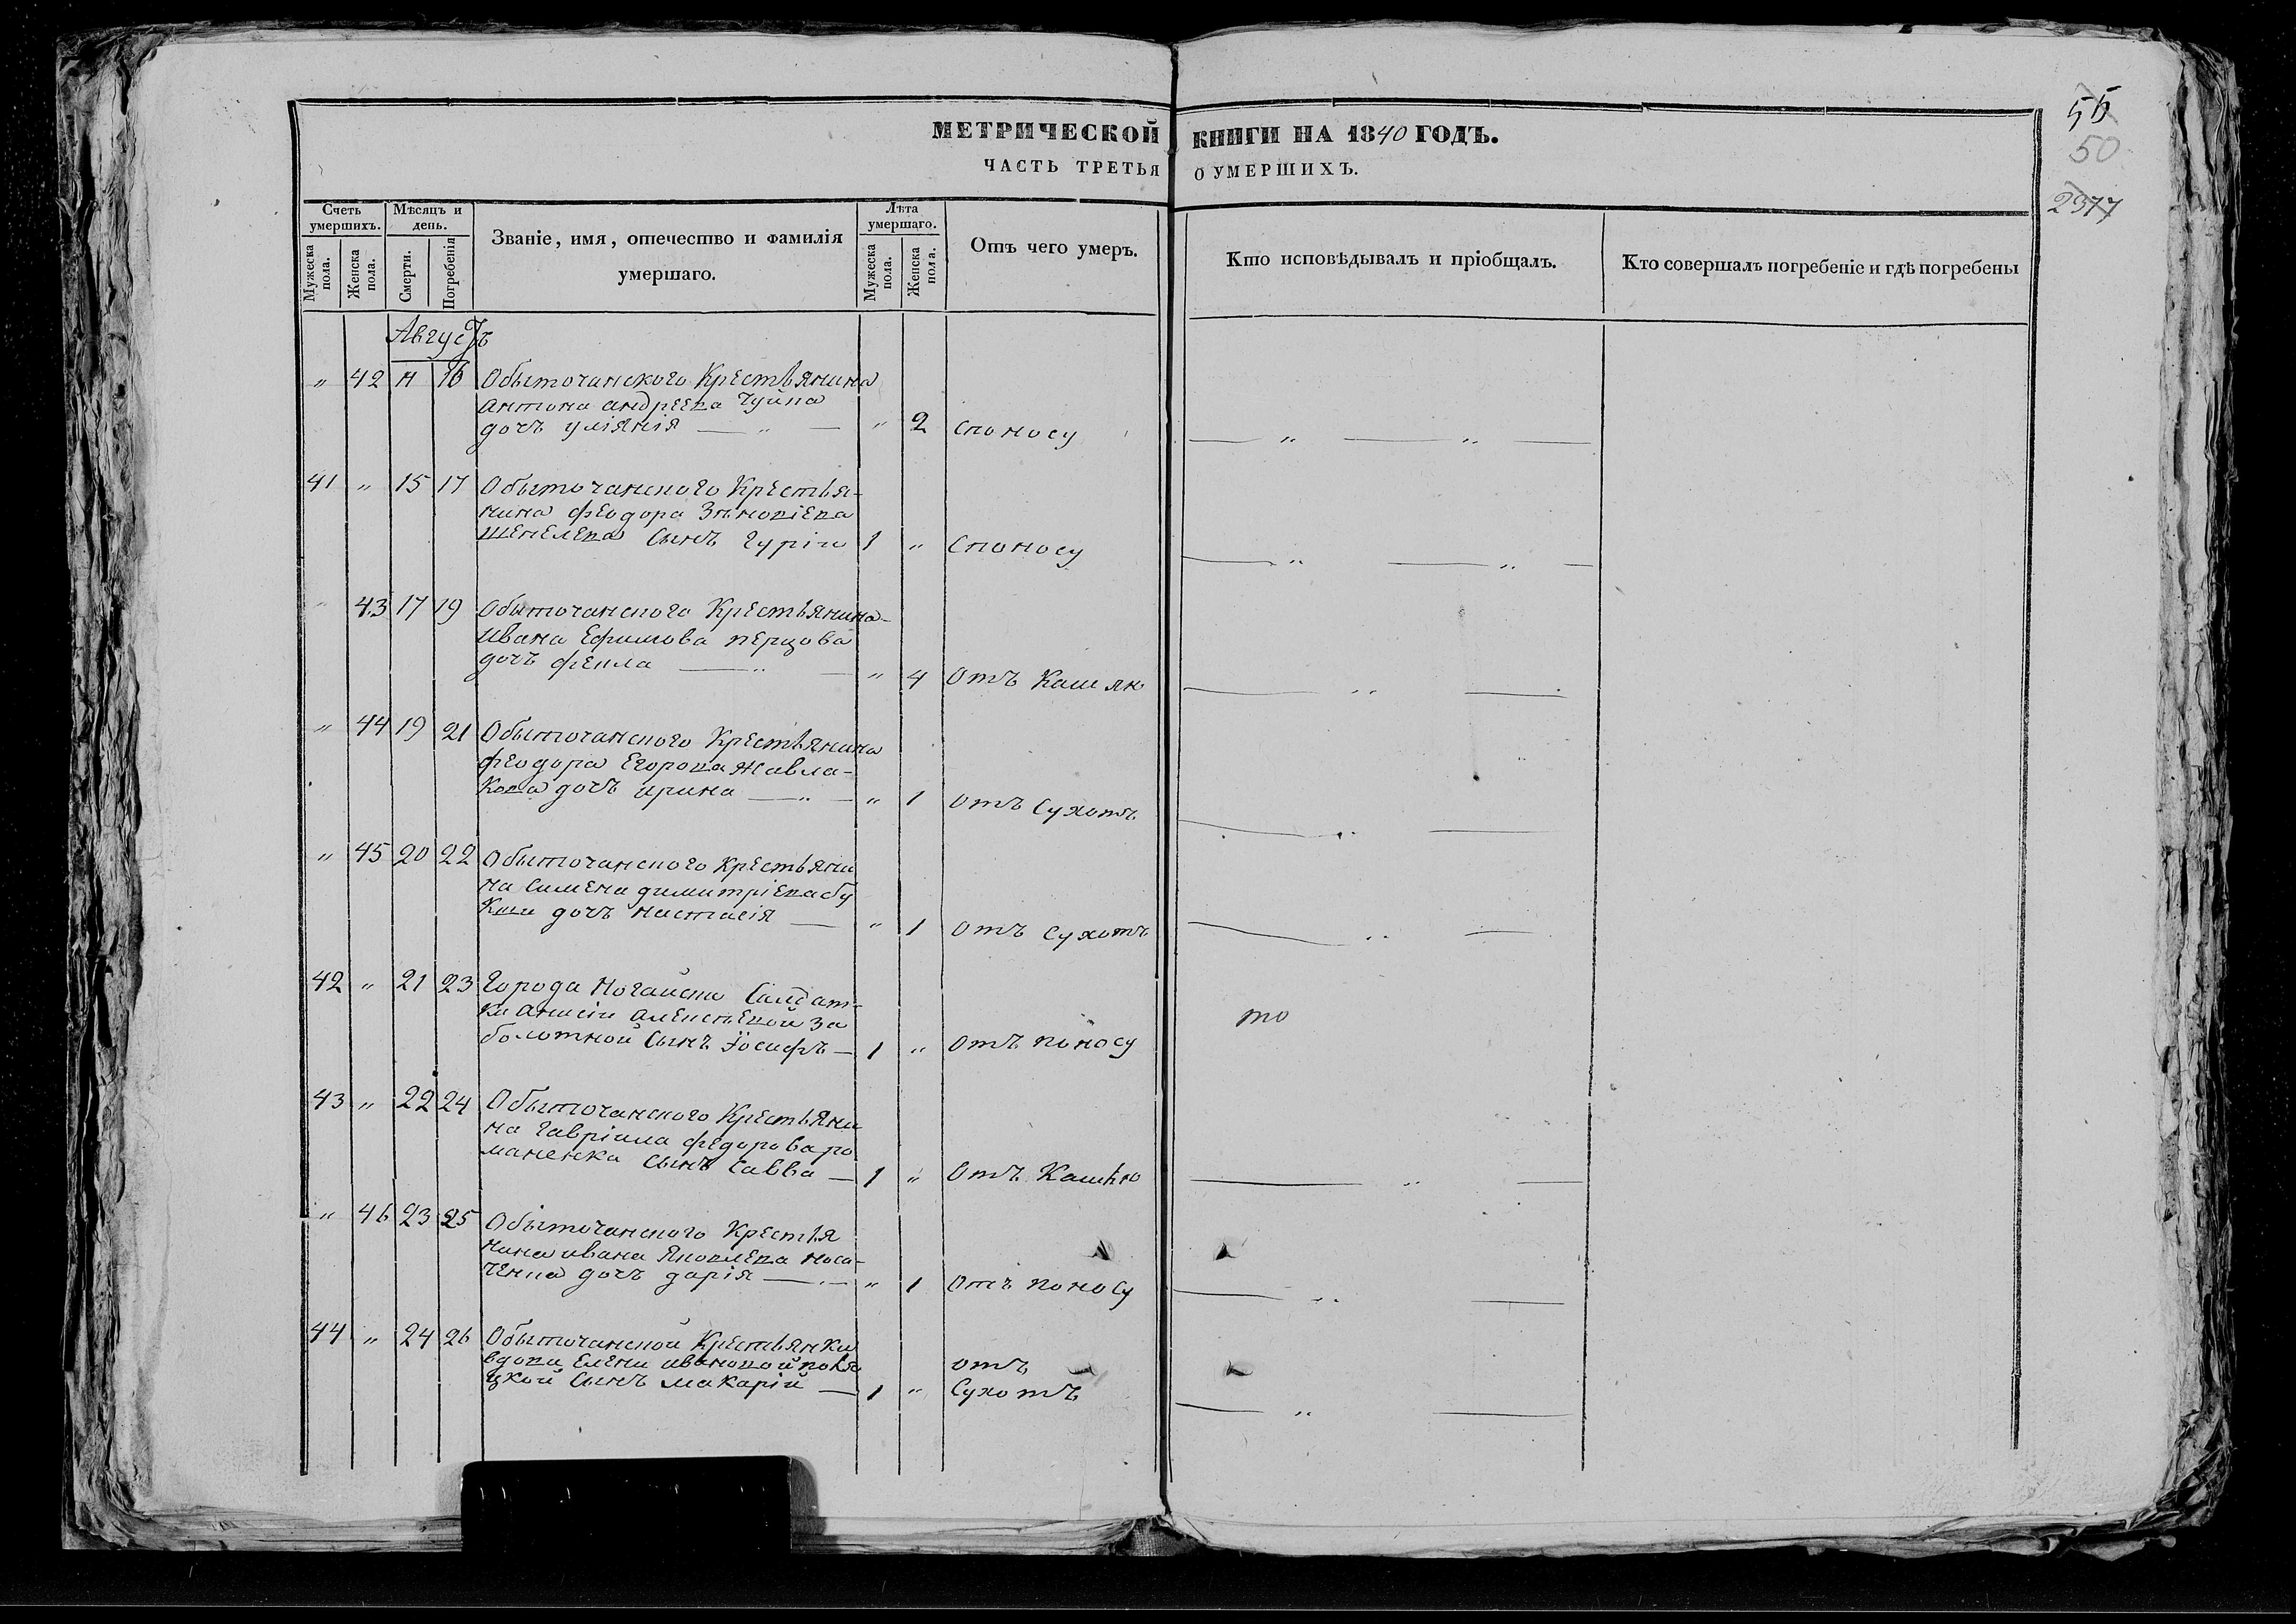 55
50
2377
МЕТРИЧЕСКОЙ КНИГИ НА 1840 ГОДЪ.
ЧАСТЬ ТРЕТЬЯ О УМЕРШИХЪ.
Счетъ умершихъ.
Мужеска пола.
Женска пола.
Мѣсяцъ и день.
Смерти.
Погребенія
Званіе, имя, отечество и фамилія умершаго.
Лѣта умершаго.
Мужеска пола.
Женска пола.
Отъ чего умеръ.
Кто исповѣдывалъ и пріобщалъ.
Кто совершалъ погребеніе и гдѣ погребены
Августъ
" 42 14 16 Обыточанского Крестьянина
антона андреева Чуйка
дочь уліянія — " — " 2 споносу
41 " 15 17 Обыточанского Крестья-
нина феодора Зѣновіева
шенелева Сынъ гурій 1 " Споносу
" 43 17 19 Обыточанского Крестьянина
ивана Ефимова перцова
дочь фекла — " — " 4 Отъ Кашлю
" 44 19 21 Обыточанского Крестьянина
феодора Егорова Жавла-
кова дочь ирина — " — " 1 отъ Сухотъ
" 45 20 22 Обыточанского Крестьяни
на Симена димитріева бу
дочь настасія — " 1 отъ Сухотъ
42 " 21 23 Города Ногайска Салдат-
ки анисіи алексѣевой За
болотной Сынъ Іосифъ — 1 " отъ поносу
то
43 " 22 24 Обыточанского Крестьяни
на гавріила федорова ро
маненка Сынъ Савва — 1 " Отъ Кашлю
" 46 23 25 Обыточанского Крестья
нина ивана Яковлева носа-
ченка дочь дарія — " — " 1 Отъ поносу
44 " 24 26 Обыточанской Крестьянки
вдовы Елены ивановой
цкой Сынъ макарій — 1 " отъ
Сухотъ